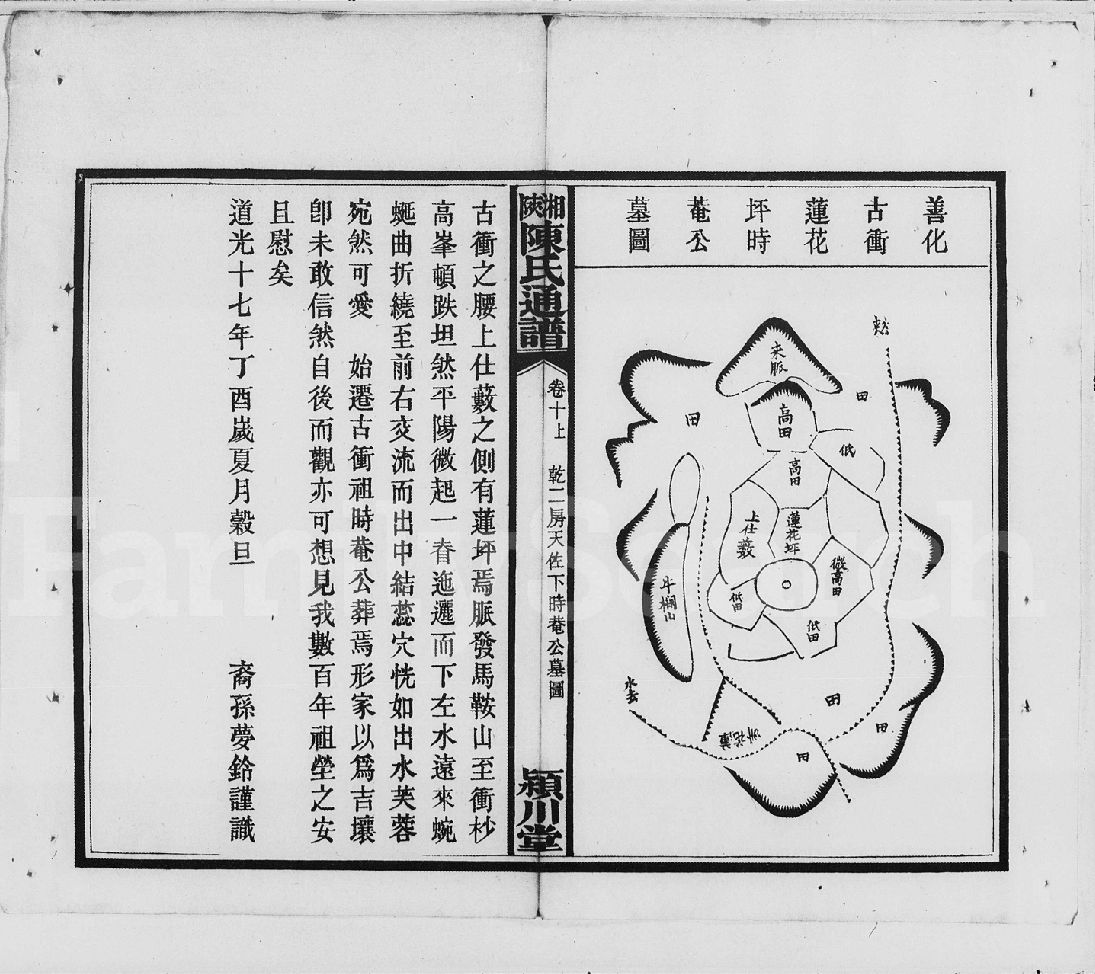 善化
古衝
蓮花
坪時
菴公
墓圖
來脈
田
高田
田
低
高田
上仕藪
蓮花坪
微高田
低田
低田
斗棡山
水去
田
田
田
湘陝陳氏通譜
卷十上 乾二房天佐下時菴公墓圖
潁川堂
古衝之腰上仕藪之側有蓮坪焉脈發馬鞍山至衝杪
高峯頓跌坦然平陽微起一脊迤邐而下左水遠來蜿
蜒曲折繞至前右交流而出中結蕊穴恍如出水芙蓉
宛然可愛 始遷古衝祖時菴公葬焉形家以爲吉壤
卽未敢信然自後而觀亦可想見我數百年祖塋之安
且慰矣
道光十七年丁酉嵗夏月穀旦 裔孫夢鈴謹識
FamilySearch